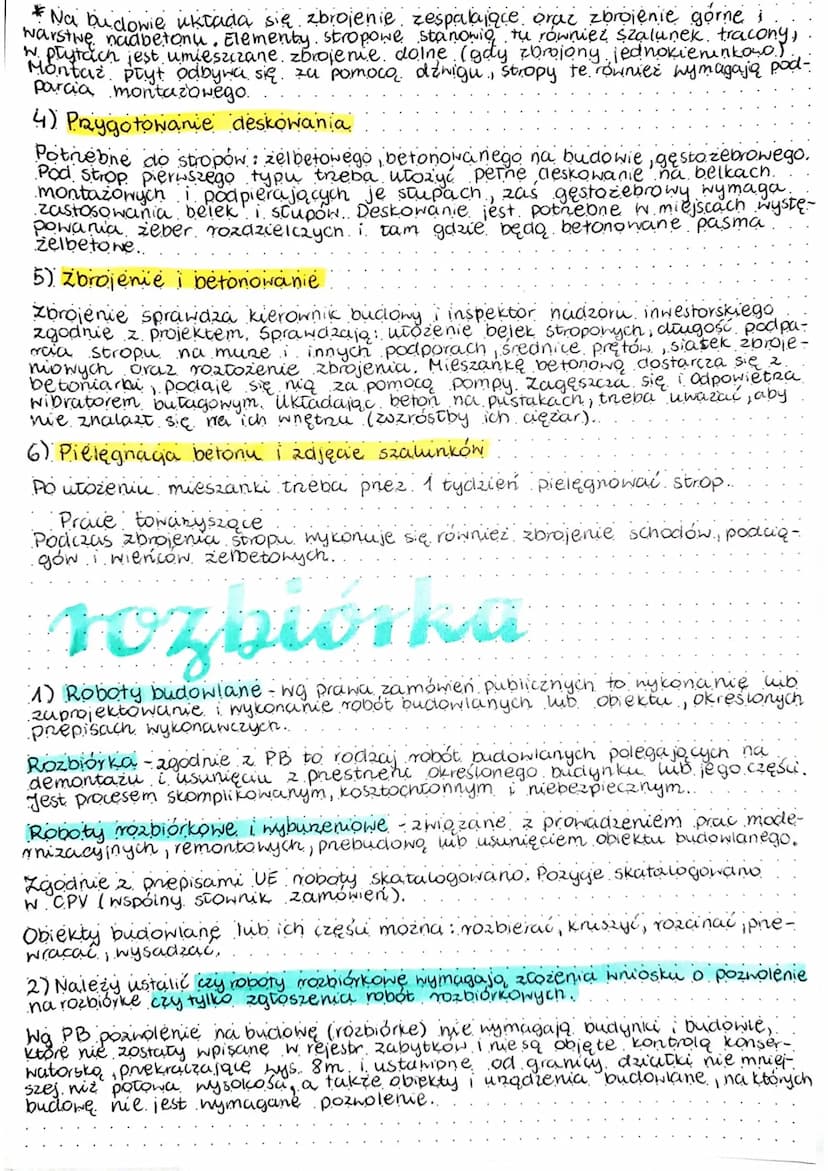 * Na budowie układa się zbrojenie zespalające oraz zbrojenie górne i
warstwę nadbetonu. Elementy stropowe stanowią tu również szalunek tracony,
w płytach jest umieszczane zbrojenie dolne (gdy zbrojony jednokierunkowo).
Montaż płyt odbywa się za pomocą dźwigu, stropy te również wymagają pod-
parcia montażowego.
4) Przygotowanie deskowania
Potrzebne do stropów: żelbetowego, betonowanego na budowie, gęstożebrowego.
Pod strop pierwszego typu trzeba ułożyć pełne deskowanie na belkach
montażowych i podpierających je słupach, zaś gęstożebrowy wymaga
zastosowania belek i słupów. Deskowanie jest potrzebne w miejscach wystę-
powania żeber rozdzielczych i tam gdzie będą betonowane pasma
żelbetowe.
5) Zbrojenie i betonowanie
Zbrojenie sprawdza kierownik budowy i inspektor nadzoru inwestorskiego
zgodnie z projektem. Sprawdzają: ułożenie belek stropowych, długość podpa-
rcia stropu na murze i innych podporach, średnice prętów, siatek zbroje-
niowych oraz rozłożenie zbrojenia. Mieszankę betonową dostarcza się z
betoniarki, podaje się nią za pomocą pompy. Zagęszcza się i odpowietrza
wibratorem buławowym. Układając beton na pustakach, trzeba uważać, aby
nie znalazł się na ich wnętrzu (wzrósłby ich ciężar).
6) Pielęgnacja betonu i zdjęcie szalunków
Po ułożeniu mieszanki trzeba przez 1 tydzień pielęgnować strop.
Prace towarzyszące
Podczas zbrojenia stropu wykonuje się również zbrojenie schodów, podcią-
gów i wieńców żelbetowych.
rozbiórka
1) Roboty budowlane - wg prawa zamówień publicznych to wykonanie lub
zaprojektowanie i wykonanie robót budowlanych lub obiektu, określonych
przepisach wykonawczych.
Rozbiórka - zgodnie z PB to rodzaj robót budowlanych polegających na
demontażu i usunięciu z przestrzeni określonego budynku lub jego części.
Jest procesem skomplikowanym, kosztochłonnym i niebezpiecznym.
Roboty rozbiórkowe i wyburzeniowe - związane z prowadzeniem prac mode-
rnizacyjnych, remontowych, przebudową lub usunięciem obiektu budowlanego.
Zgodnie z przepisami UE roboty skatalogowano. Pozycje skatalogowano
w CPV (wspólny słownik zamówień).
Obiekty budowlane lub ich części można: rozbierać, kruszyć, rozcinać, prze-
wracać, wysadzać.
2) Należy ustalić czy roboty rozbiórkowe wymagają złożenia wniosku o pozwolenie
na rozbiórkę czy tylko zgłoszenia robót rozbiórkowych.
Wg PB pozwolenie na budowę (rozbiórkę) nie wymagają budynki i budowle,
które nie zostały wpisane w rejestr zabytków i nie są objęte kontrolą konser-
watorską, przekraczające wys. 8m i ustawione od granicy działki nie mniej-
szej niż połowa wysokości, a także obiekty i urządzenia budowlane, na których
budowę nie jest wymagane pozwolenie.